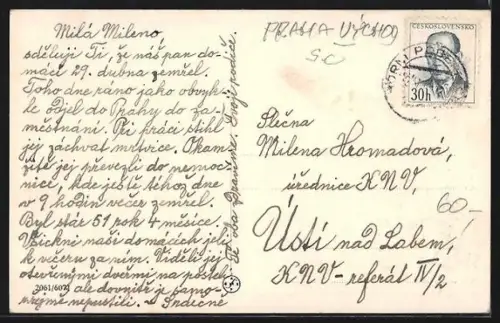 Milá Mileno,
sděluji Ti, že náš pan do-
mácí 29. dubna zemřel.
Toho dne ráno jako obvyk-
le jel do Prahy do za-
městnání. Při práci stihl
jej záchvat mrtvice. Okam-
žitě jej převezli do nemoc-
nice, kde ještě téhož dne
v 9 hodin večer zemřel.
Byl stár 51 rok 4 měsíce.
Všichni naši domácích jeli
k večeru za ním. Viděli jej
otevřenými dveřmi na posteli
ale dovnitř je samo-
zřejmě nepustili. Srdečně
Tvoji rodiče.
2061/6074
PRAHA VÝCHOD
50
ČESKOSLOVENSKO
30h
Slečna
Milena Hromadová,
úřednice KNV,
Ústí nad Labem,
KNV-referát IV/2
60-